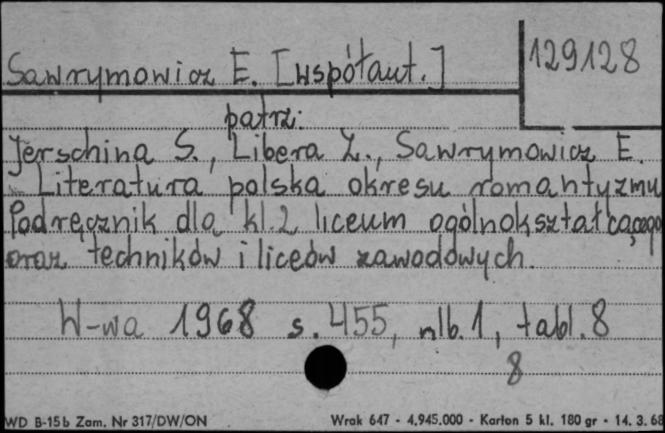 Sawrymowicz E. [współaut.]
129128
patrz:
Jerschina S., Libera Z., Sawrymowicz E.
Literatura polska okresu romantyzmu
Podręcznik dla kl. 2 liceum ogólnokształcącego
oraz techników i liceów zawodowych.
W-wa 1968 s. 455, nlb. 1, tabl. 8
8
WD B-15b Zam. Nr 317/DW/ON
Wrak 647 - 4.945.000 - Karton 5 kl. 180 gr - 14. 3. 68